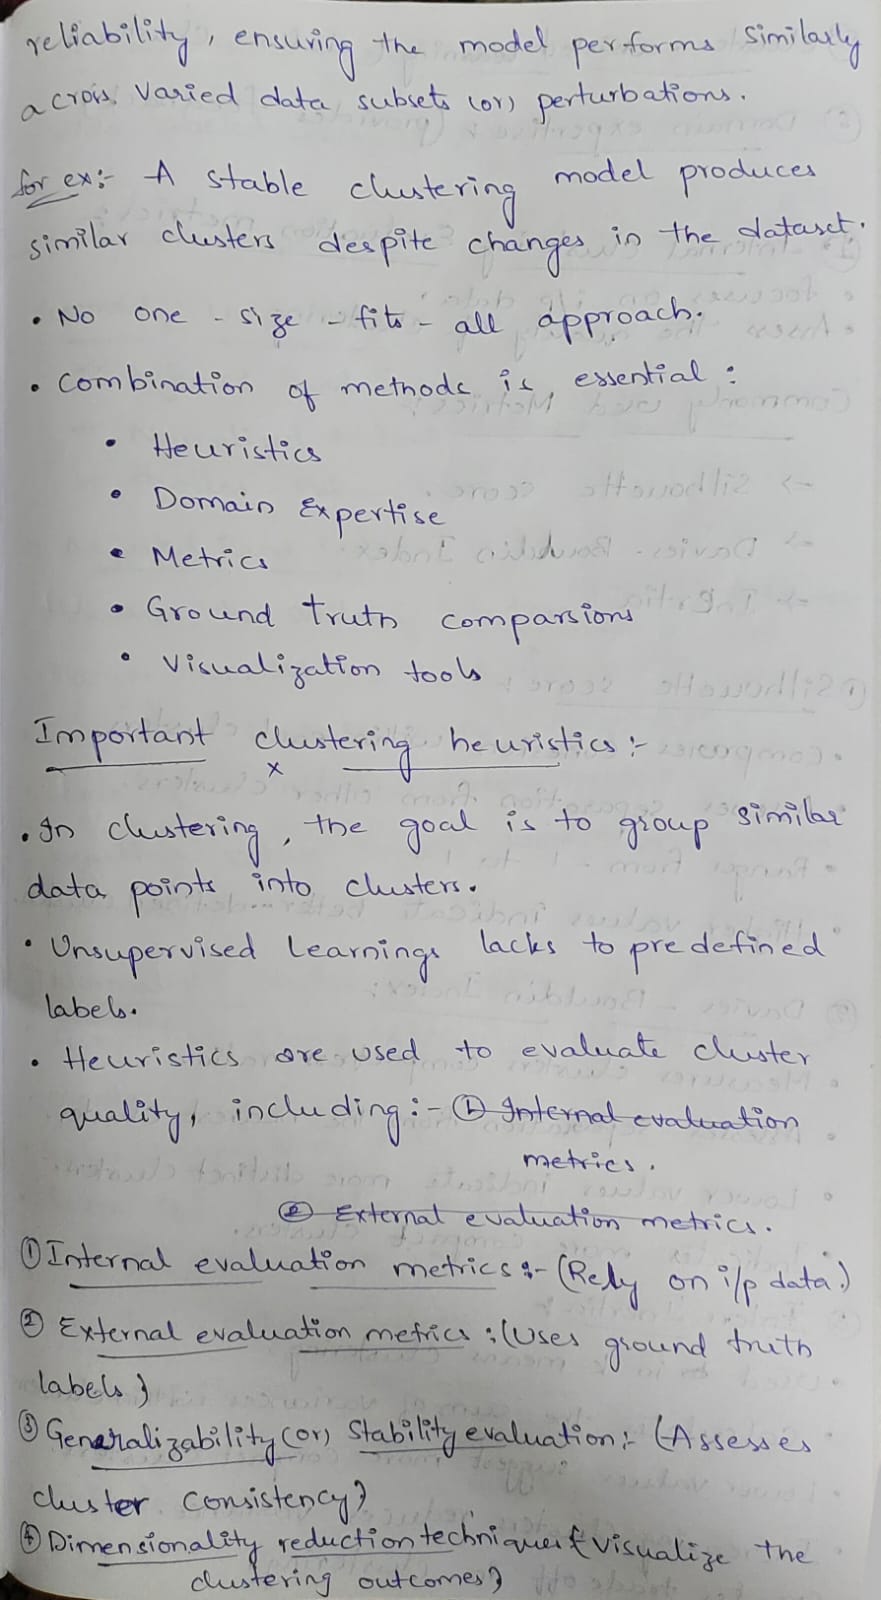 reliability, ensuring the model performs similarly
across varied data subsets (or) perturbations.
for ex:- A stable clustering model produces
similar clusters despite changes in the dataset.
• No one - size - fits - all approach.
• Combination of methods is essential :
• Heuristics
• Domain Expertise
• Metrics
• Ground truth comparsions
• Visualization tools
Important clustering heuristics :-
x
• In clustering, the goal is to group similar
data points into clusters.
• Unsupervised Learnings lacks to predefined
labels.
• Heuristics are used to evaluate cluster
quality, including :- ① Internal evaluation
metrics.
② External evaluation metrics.
① Internal evaluation metrics :- (Rely on i/p data.)
② External evaluation metrics : (Uses ground truth
labels)
③ Generalizability (or) Stability evaluation :- (Assesses
cluster consistency)
④ Dimensionality reduction techniques {visualize the
clustering outcomes}